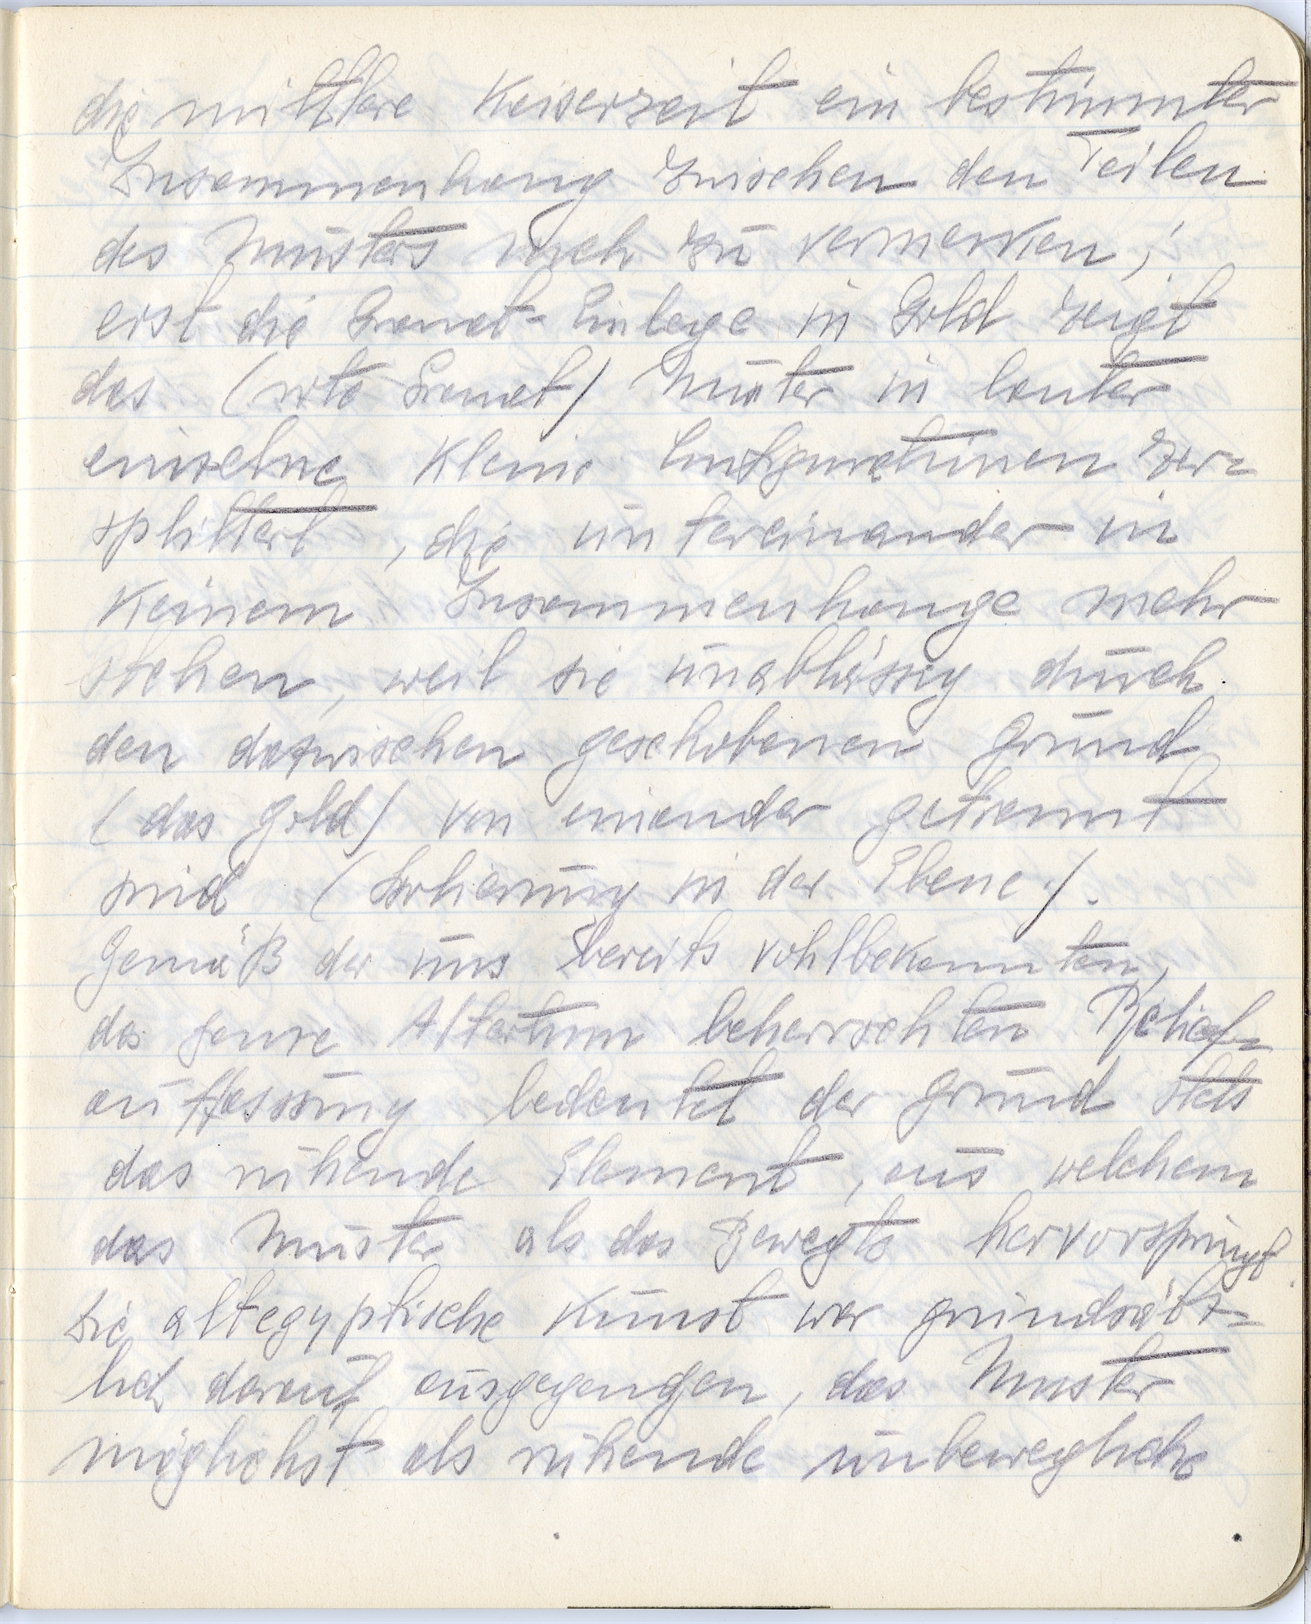 die mittlere Kaiserzeit ein bestimmter
Zusammenhang zwischen den Teilen
des Musters noch zu vermerken;
erst die Granat-Einlage in Gold zeigt
das (rote Granat) Muster in lauter
einzelne kleine Configurationen zer=
splittert, die untereinander in
keinem Zusammenhange mehr
stehen, weil sie unablässig durch
den dazwischen geschobenen Grund
(das Gold) von einander getrennt
sind (Isolierung in der Ebene).
Gemäß der uns bereits wohlbekannten,
das ganze Altertum beherrschten Relief=
auffassung bedeutet der Grund stets
das ruhende Element, aus welchem
das Muster als das Bewegte hervorspringt
Die altegyptische Kunst war grundsätz=
lich darauf ausgegangen, das Muster
möglichst als ruhende unbewegliche